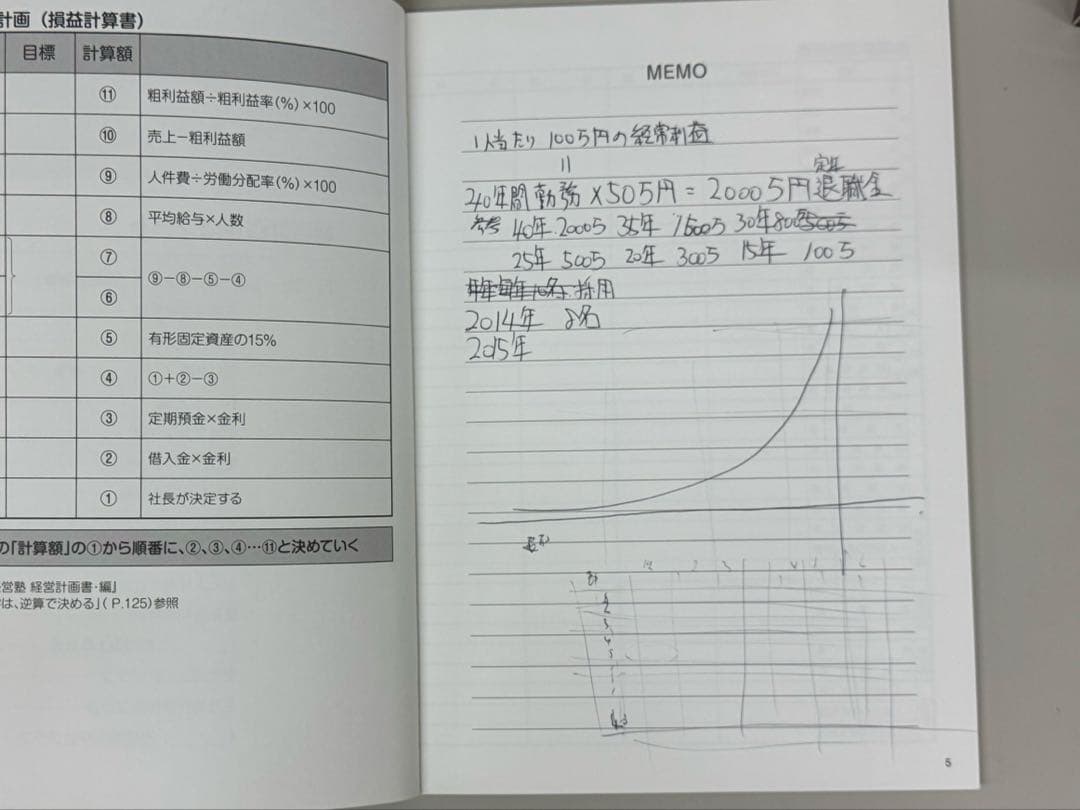 計画（損益計算書）
目標 計算額
⑪ 粗利益額÷粗利益率(%)×100
⑩ 売上－粗利益額
⑨ 人件費÷労働分配率(%)×100
⑧ 平均給与×人数
⑦
⑨－⑧－⑤－④
⑥
⑤ 有形固定資産の15%
④ ①＋②－③
③ 定期預金×金利
② 借入金×金利
① 社長が決定する
の「計算額」の①から順番に、②、③、④…⑪と決めていく
営塾 経営計画書・編』
は、逆算で決める」(P.125)参照
MEMO
1人当たり 100万円の経常利益
〃
定年
40年間勤務×50万円=2000万円退職金
参考 40年 2000万 35年 1500万 30年 800万
25年 500万 20年 300万 15年 100万
採用
2014年 8名
2015年
2 3 4 5 6
1
2
3
4
5
5